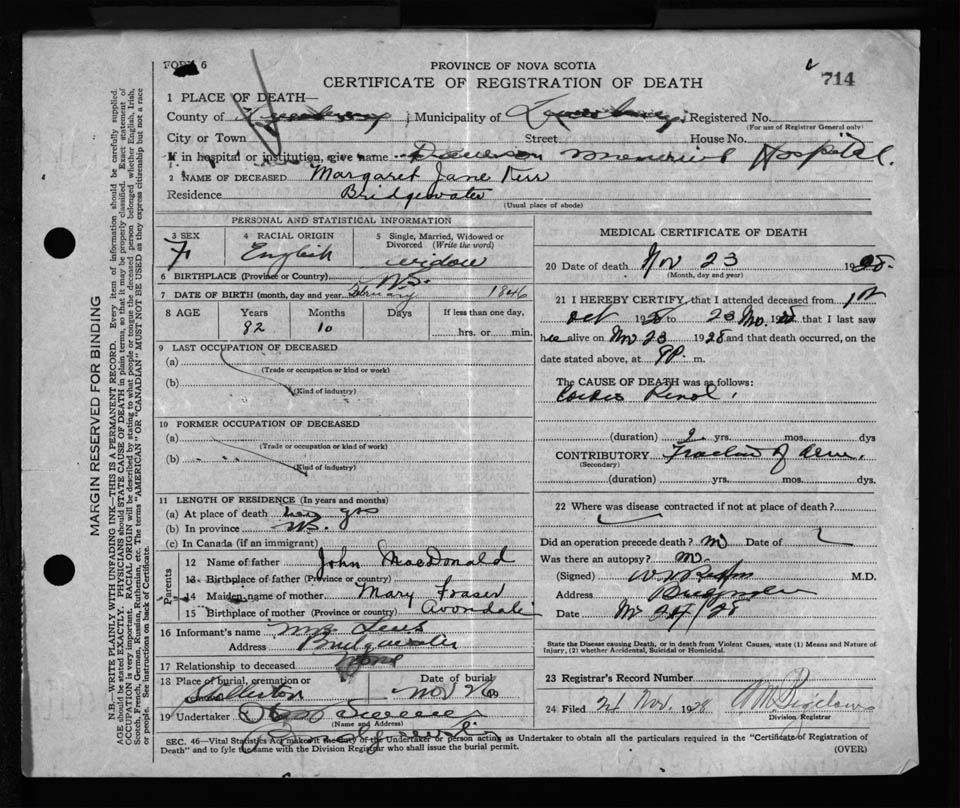 FORM 6
PROVINCE OF NOVA SCOTIA
CERTIFICATE OF REGISTRATION OF DEATH
714
1 PLACE OF DEATH—
County of ; Municipality of Registered No.
(For use of Registrar General only)
City or Town Street House No.
If in hospital or institution, give name Memorial Hospital.
2 NAME OF DECEASED Margaret Jane Kerr
Residence Bridgewater
(Usual place of abode)
PERSONAL AND STATISTICAL INFORMATION
3 SEX 4 RACIAL ORIGIN 5 Single, Married, Widowed or Divorced (Write the word)
F English widow
6 BIRTHPLACE (Province or Country) N.S.
7 DATE OF BIRTH (month, day and year) February 1846
8 AGE Years Months Days If less than one day,
82 10 hrs. or min.
9 LAST OCCUPATION OF DECEASED
(a)
(Trade or occupation or kind or work)
(b)
(Kind of industry)
10 FORMER OCCUPATION OF DECEASED
(a)
(Trade or occupation or kind of work)
(b)
(Kind of industry)
11 LENGTH OF RESIDENCE (In years and months)
(a) At place of death yrs
(b) In province
(c) In Canada (if an immigrant)
Parents
12 Name of father John MacDonald
13 Birthplace of father (Province or country)
14 Maiden name of mother Mary Fraser
15 Birthplace of mother (Province or country) Avondale
16 Informant's name Mrs
Address Bridgewater
17 Relationship to deceased None
18 Place of burial, cremation or Date of burial
Stellerton Nov 26
19 Undertaker
(Name and Address)
MEDICAL CERTIFICATE OF DEATH
20 Date of death Nov 23 1928.
(Month, day and year)
21 I HEREBY CERTIFY that I attended deceased from 1st
Oct 192 to 23 Nov. 192 that I last saw
h alive on Nov 23 1928 and that death occurred, on the
date stated above, at 9P. m.
The CAUSE OF DEATH was as follows:
Cardio Renal
(duration) 2 yrs. mos. dys
CONTRIBUTORY Fracture of
(Secondary)
(duration) yrs. mos. dys.
22 Where was disease contracted if not at place of death?
Did an operation precede death? no Date of
Was there an autopsy? no
(Signed) M.D.
Address Bridgewater
Date Nov 24/28
State the Disease causing Death, or in deaths from Violent Causes, state (1) Means and Nature of Injury, (2) whether Accidental, Suicidal or Homicidal.
23 Registrar's Record Number
24 Filed Nov. 1928
Division Registrar
SEC. 46—Vital Statistics Act makes it the duty of the Undertaker or person acting as Undertaker to obtain all the particulars required in the "Certificate of Registration of
Death" and to fyle the same with the Division Registrar who shall issue the burial permit.
(OVER)
MARGIN RESERVED FOR BINDING
N.B.—WRITE PLAINLY WITH UNFADING INK—THIS IS A PERMANENT RECORD. Every item of information should be carefully supplied.
AGE should be stated EXACTLY. PHYSICIANS should STATE CAUSE OF DEATH in plain terms, so that it may be properly classified. Exact statement of
OCCUPATION is very important. RACIAL ORIGIN will be described by stating to what people or tongue the deceased person belonged whether English, Irish,
Scotch, French, German, Russian, Ruthenian, etc. The terms "AMERICAN" OR "CANADIAN" MUST NOT BE USED as they express citizenship but not a race
or people. See instructions on back of Certificate.